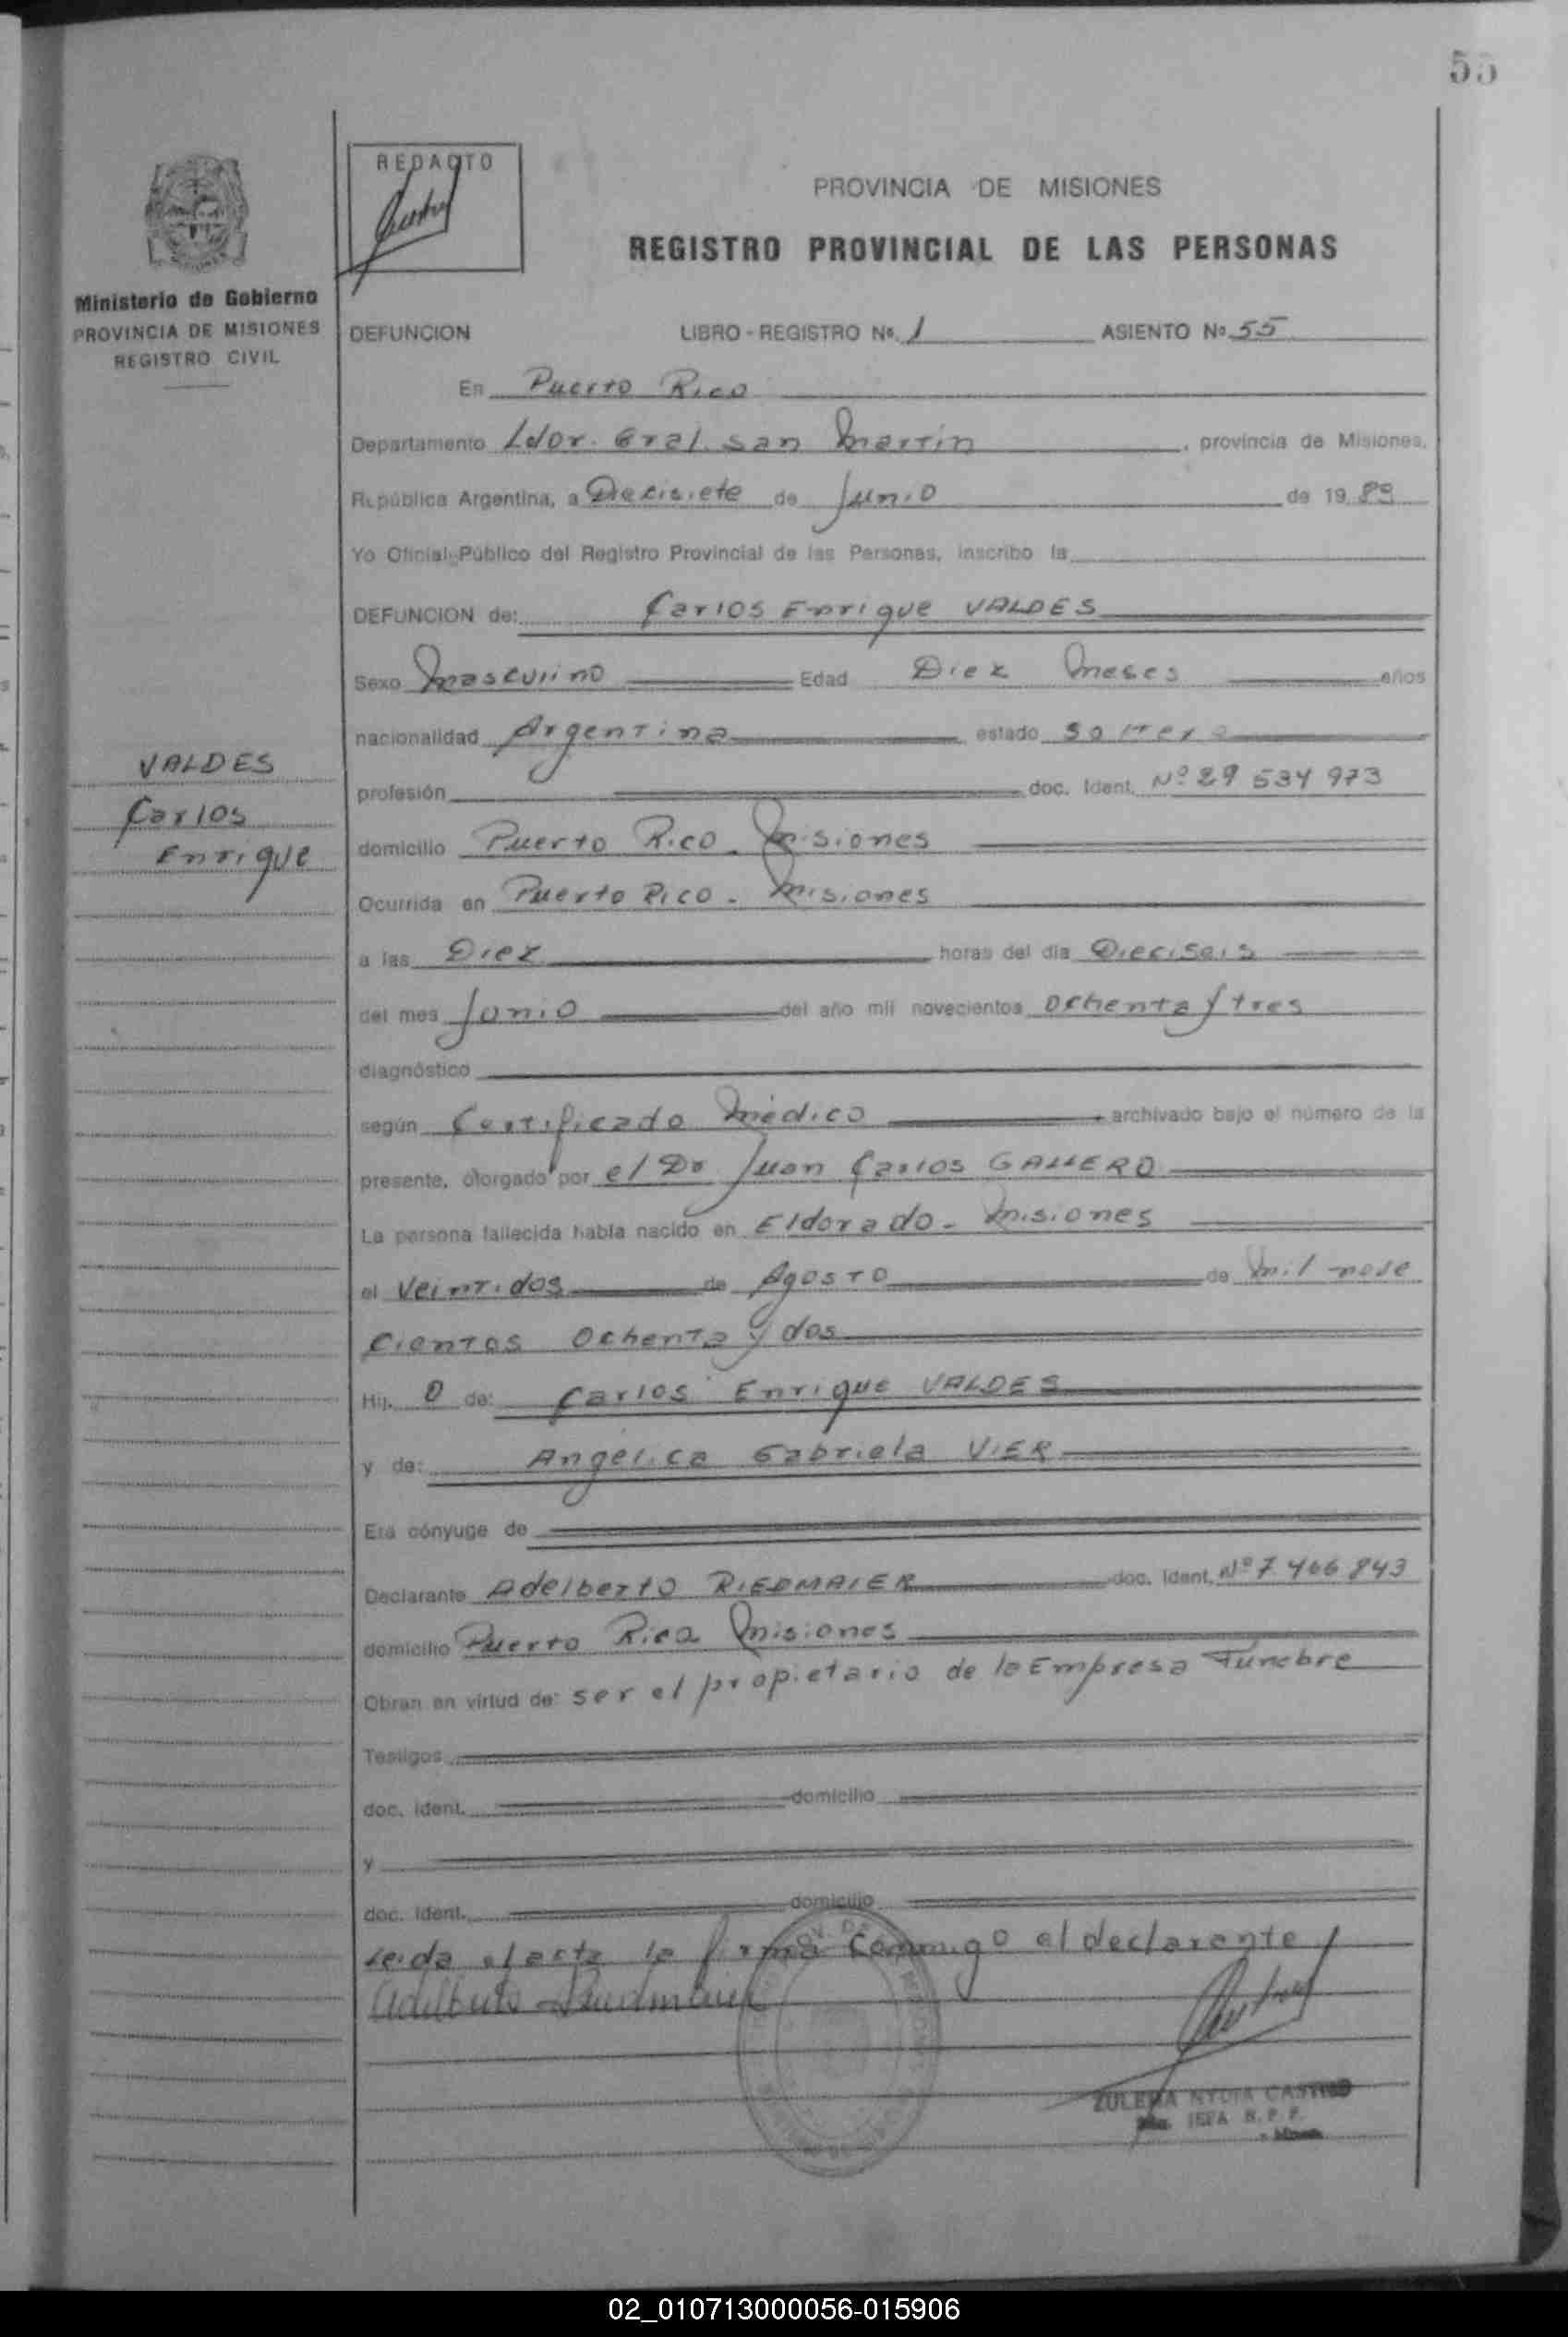 55
REDACTO
PROVINCIA DE MISIONES
REGISTRO PROVINCIAL DE LAS PERSONAS
Ministerio de Gobierno
PROVINCIA DE MISIONES
REGISTRO CIVIL
DEFUNCION LIBRO - REGISTRO No. 1 ASIENTO No 55
En Puerto Rico
Departamento Ldor. Gral. San Martin , provincia de Misiones,
República Argentina, a Diecisiete de Junio de 19
Yo Oficial Público del Registro Provincial de las Personas, inscribo la
DEFUNCION de: Carlos Enrique VALDES
Sexo Masculino Edad Diez Meses años
nacionalidad Argentina estado Soltero
VALDES
Carlos
Enrique
profesión doc. Ident. Nº 29 534 973
domicilio Puerto Rico - Misiones
Ocurrida en Puerto Rico - Misiones
a las Diez horas del día Dieciseis
del mes Junio del año mil novecientos Ochenta y tres
diagnóstico
según Certificado Médico archivado bajo el número de la
presente, otorgado por el Dr Juan Carlos
La persona fallecida había nacido en Eldorado - Misiones
el Veintidos de Agosto de Mil nove
cientos Ochenta y dos
Hij. o de: Carlos Enrique VALDES
y de: Angelica Gabriela VIER
Era cónyuge de
Declarante Adelberto RIEDMAIER doc. Ident. Nº 7 466 843
domicilio Puerto Rico Misiones
Obran en virtud de: ser el propietario de la Empresa Funebre
Testigos
doc. ident. domicilio
y
doc. ident. domicilio
Leida el acta la firma Conmigo el declarante
Adelberto Riedmaier
ZULEMA NYDIA CASTRO
JEFA R. P. P.
02_010713000056-015906